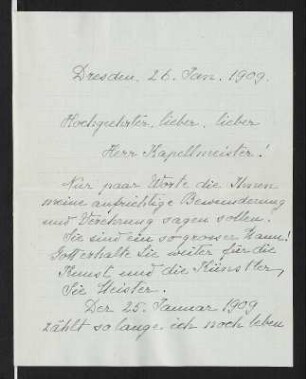 Dresden, 26. Jan. 1909.
Hochgeehrter, lieber, lieber
Herr Kapellmeister!
Nur paar Worte die Ihnen
meine aufrichtige Bewunderung
und Verehrung sagen sollen.
Sie sind ein so grosser Mann!
Gott erhalte Sie weiter für die
Kunst und die Künstler,
Sie Meister.
Der 25. Januar 1909
zählt so lange ich noch leben